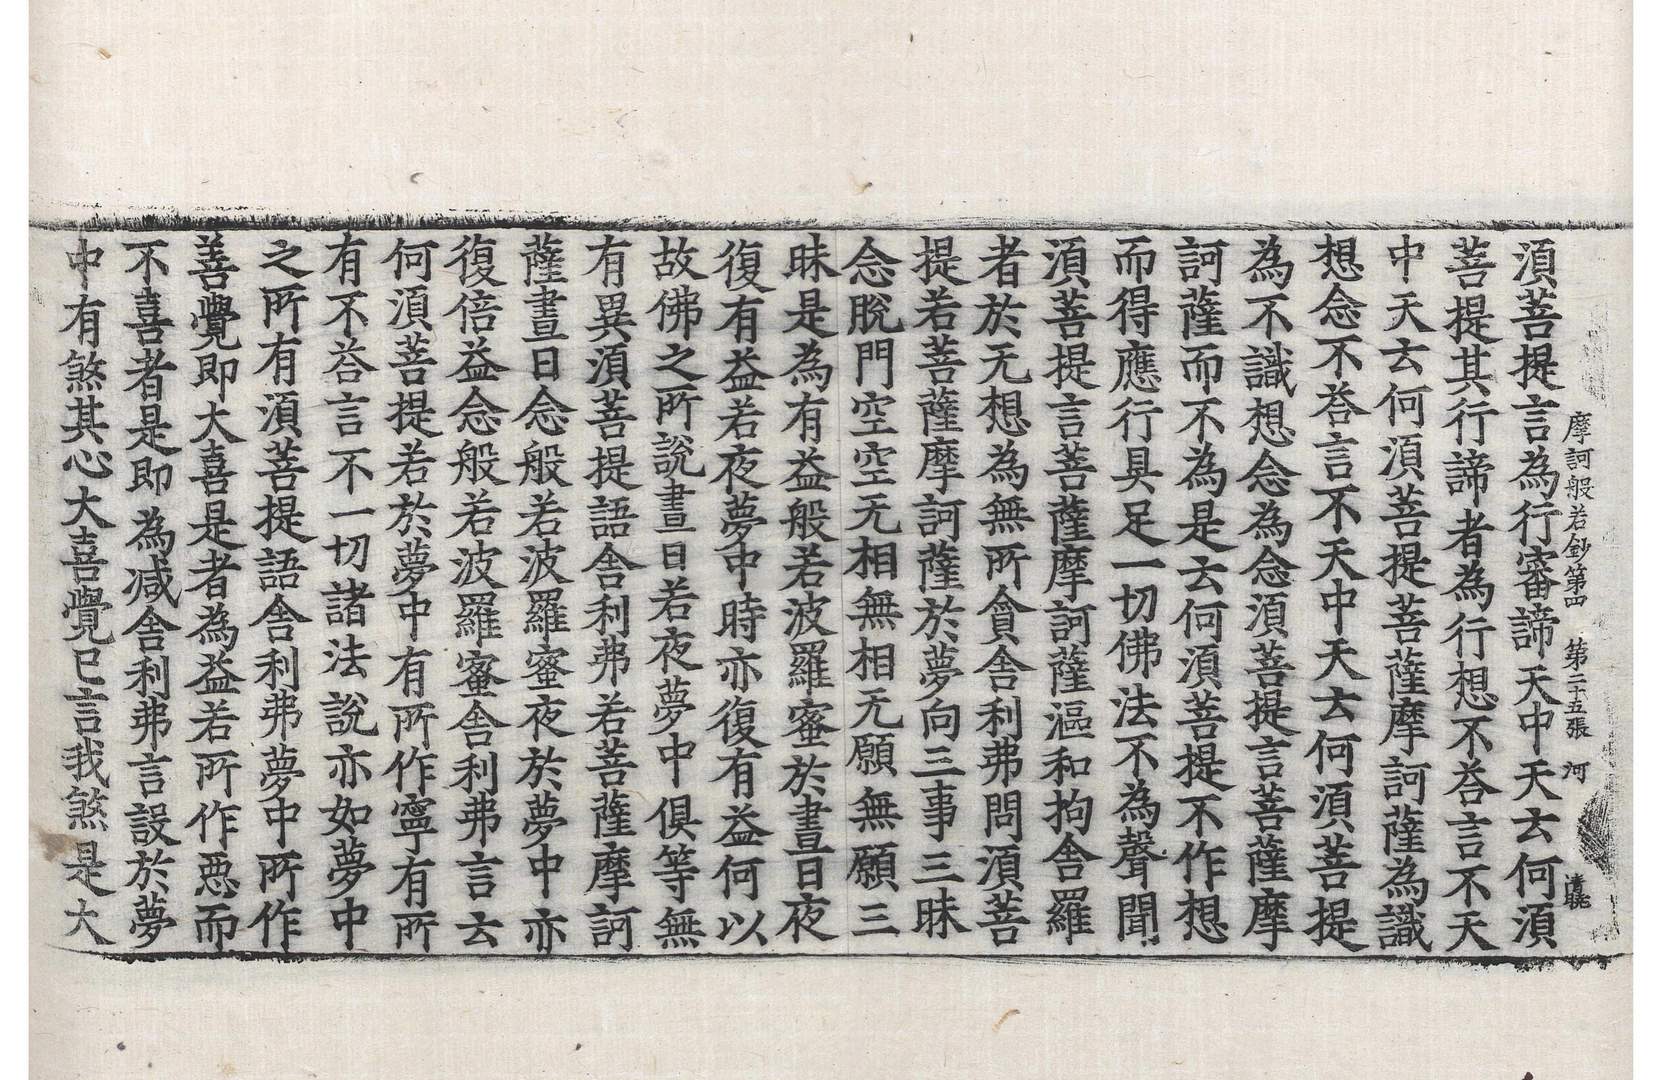 摩訶般若鈔第四　第二十五張　河　清聰
須菩提言為行審諦天中天去何須
菩提其行諦者為行想不荅言不天
中天去何須菩提菩薩摩訶薩為識
想念不荅言不天中天去何須菩提
為不識想念為念須菩提言菩薩摩
訶薩而不為是去何須菩提不作想
而得應行具足一切佛法不為聲聞
須菩提言菩薩摩訶薩漚和拘舍羅
者於无想為無所貪舍利弗問須菩
提若菩薩摩訶薩於夢向三事三昧
念脫門空空无相無相无願無願三
昧是為有益般若波羅蜜於晝日夜
復有益若夜夢中時亦復有益何以
故佛之所說晝日若夜夢中俱等無
有異須菩提語舍利弗若菩薩摩訶
薩晝日念般若波羅蜜夜於夢中亦
復倍益念般若波羅蜜舍利弗言去
何須菩提若於夢中有所作寧有所
有不荅言不一切諸法說亦如夢中
之所有須菩提語舍利弗夢中所作
善覺即大喜是者為益若所作惡而
不喜者是即為減舍利弗言設於夢
中有煞其心大喜覺已言我煞是大